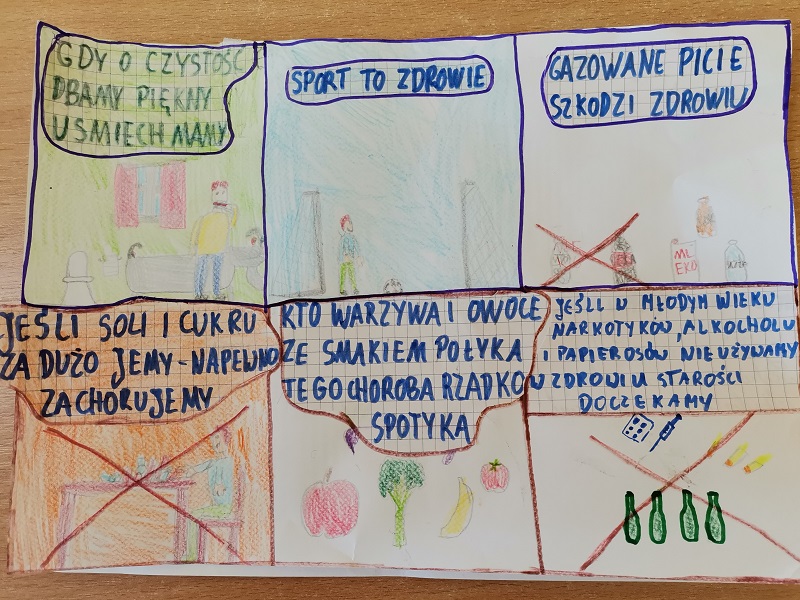 GDY O CZYSTOŚĆ
DBAMY PIĘKNY
UŚMIECH MAMY
SPORT TO ZDROWIE
GAZOWANE PICIE
SZKODZI ZDROWIU
ML
EKO
JEŚLI SOLI I CUKRU
ZA DUŻO JEMY - NAPEWNO
ZACHORUJEMY
KTO WARZYWA I OWOCE
ZE SMAKIEM POŁYKA
TEGO CHOROBA RZADKO
SPOTYKA
JEŚLI W MŁODYM WIEKU
NARKOTYKÓW, ALKOCHOLU
I PAPIEROSÓW NIEUŻYWAMY
W ZDROWIU STAROŚCI
DOCZEKAMY